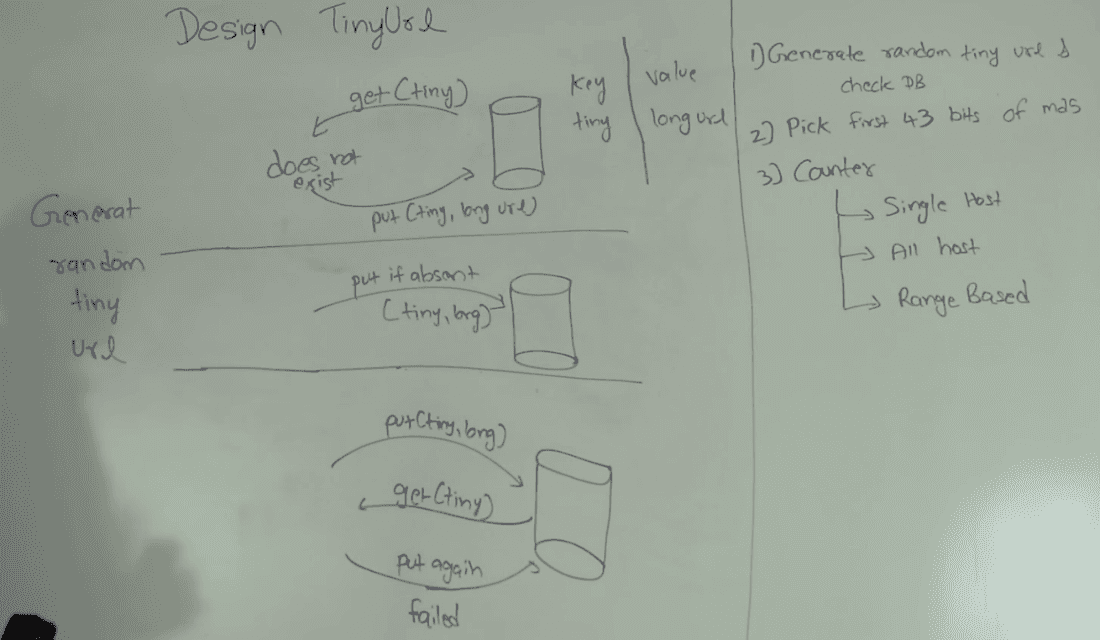 Design TinyUrl
get (tiny)
does not
exist
put (tiny, long url)
Key
tiny
value
long url
Generat
random
tiny
url
put if absant
(tiny, long)
put (tiny, long)
get (tiny)
put again
failed
1) Generate random tiny url &
check DB
2) Pick first 43 bits of md5
3) Counter
Single Host
All host
Range Based